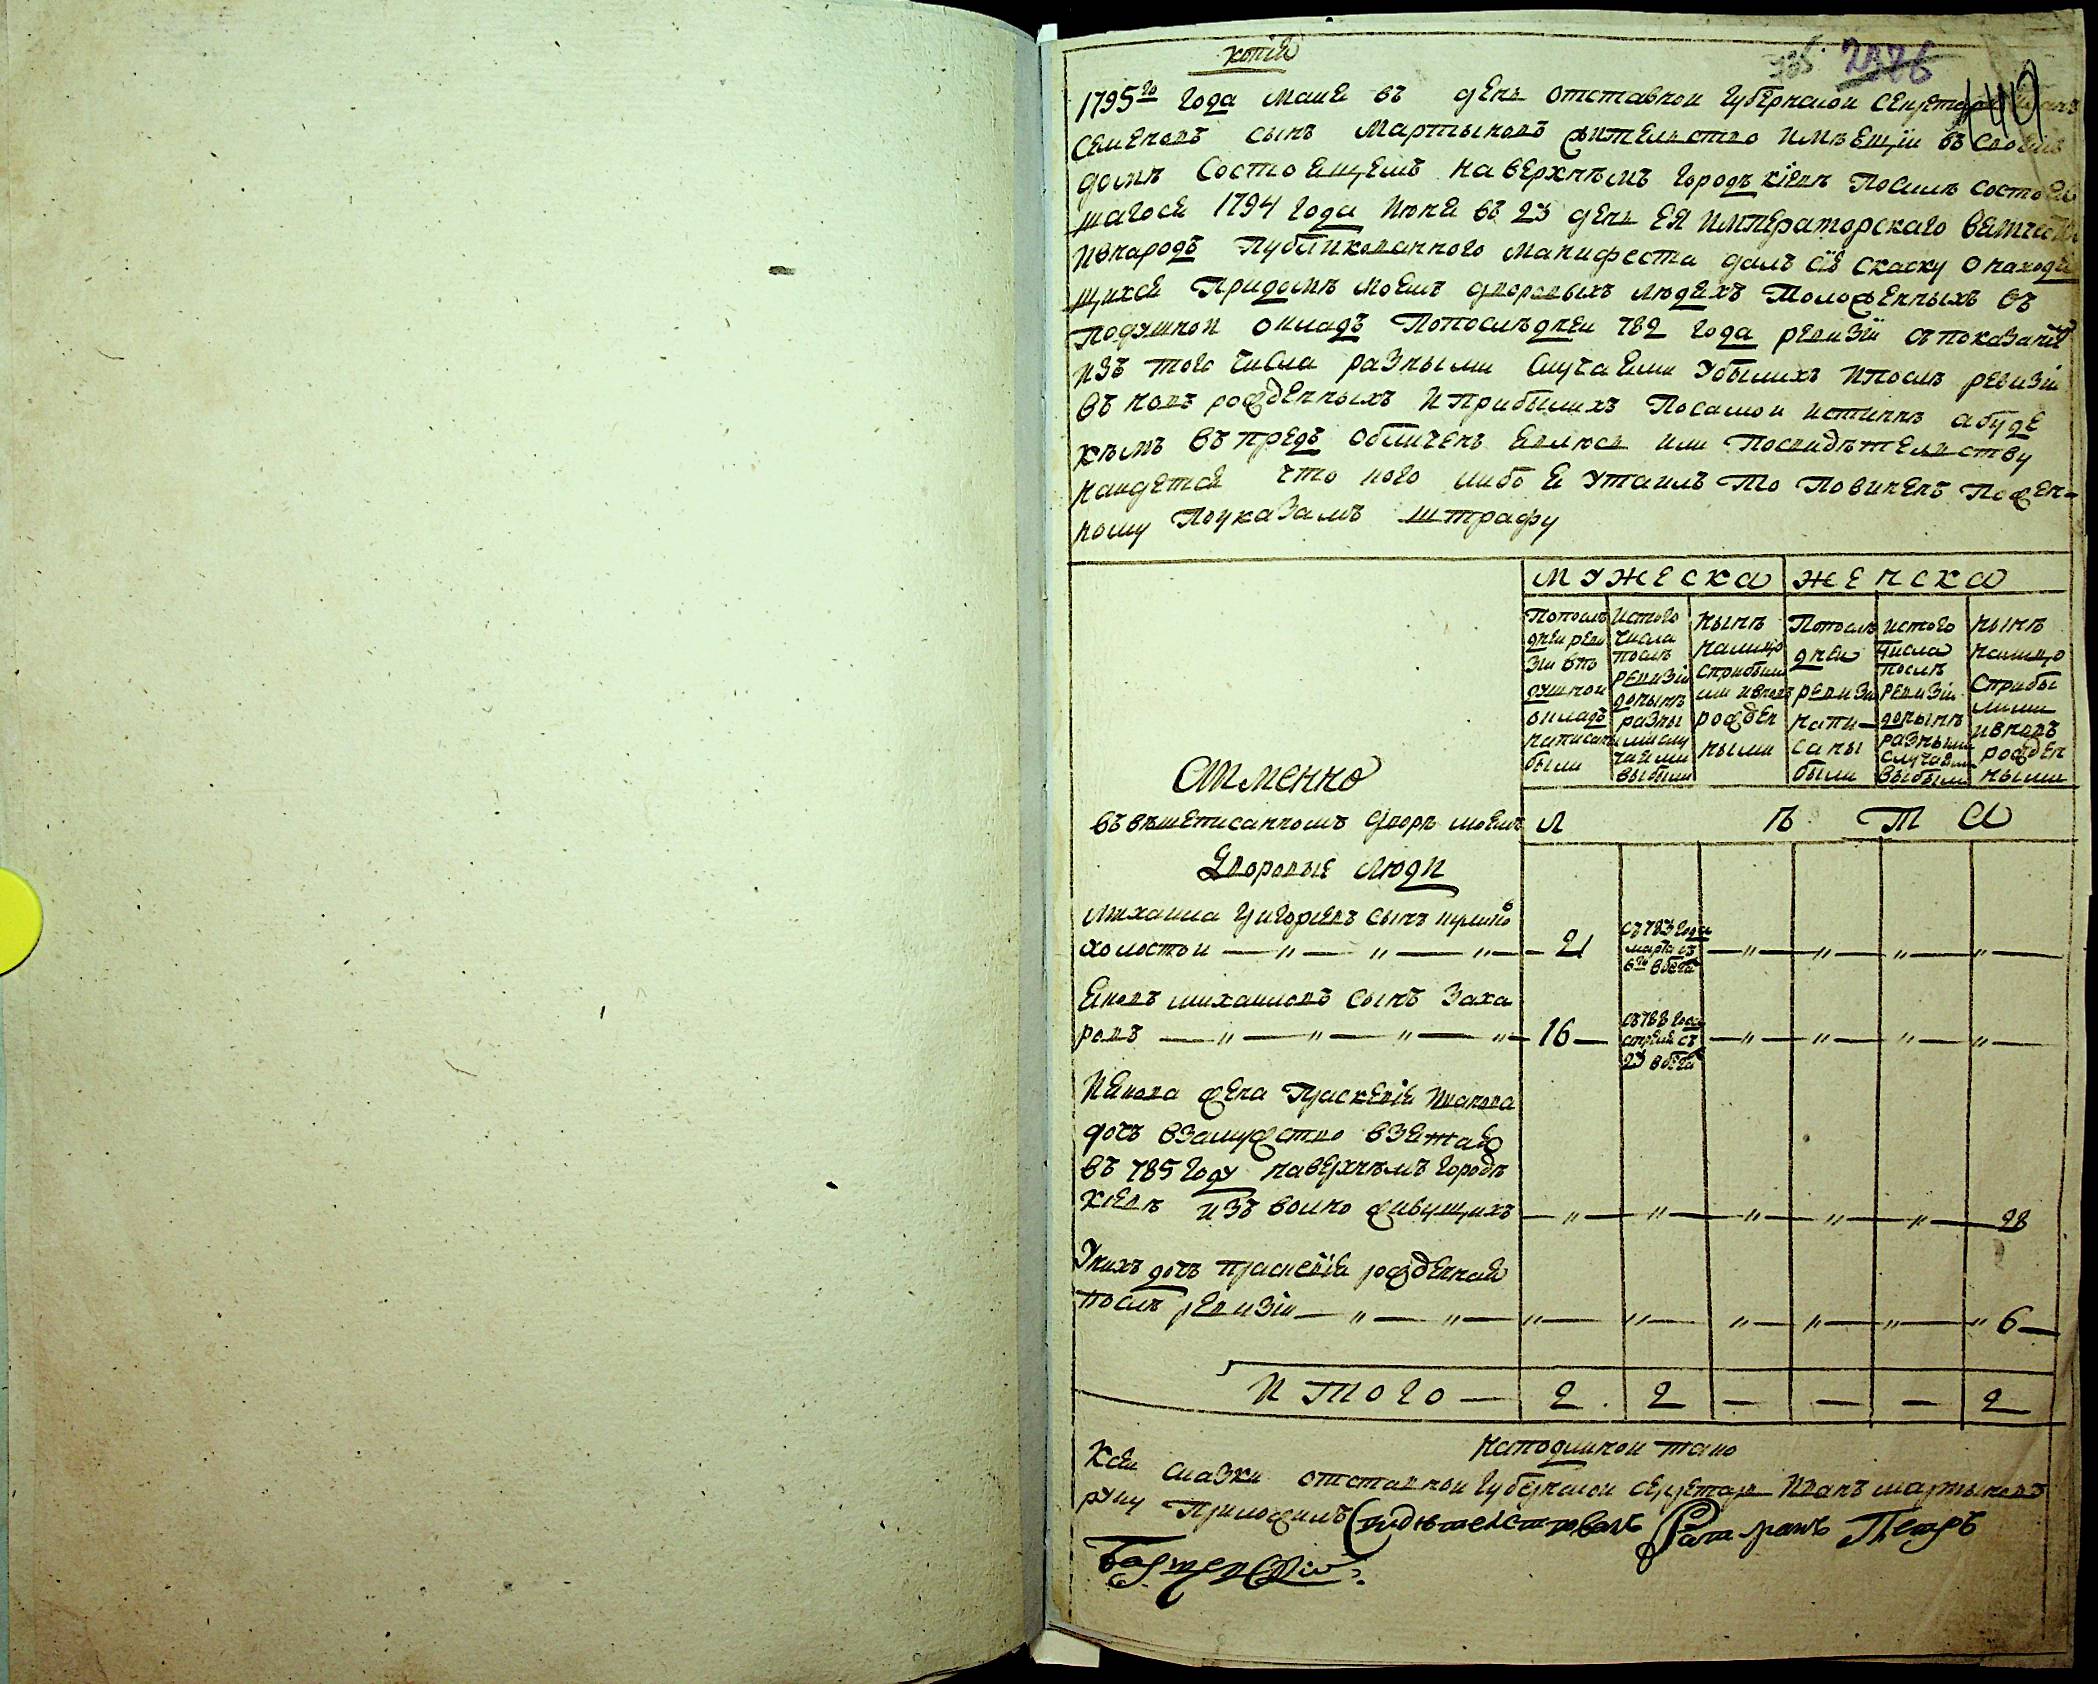 копія
735. 2826
1795го Года маия въ день отставной Губернской Секретарь Иванъ
Семеновъ сынъ Мартыновъ жительство имѣющій въ своемъ
домѣ состоящемъ на верхнѣмъ городѣ кіевѣ послѣ состояв
шагося 1794 Года июня въ 23 день ЕЯ ИМПЕРАТОРСКАГО величества
ивнародъ публикованного манифеста далъ сіѣ скаску о находя
щихся придомѣ моемъ дворовыхъ людехъ положенныхъ въ
подушной окладъ попослѣдней 782 года ревизіи съ показаніем
изъ того числа разными случаями убылихъ ипослѣ ревизіи
въ новъ рожденныхъ и прибылихъ посамой истиннѣ абуде
кѣмъ въ предъ обличенъ явлюсь или посвидѣтельству
найдется что кого либо я утаилъ то повиненъ положен-
ному поуказамъ штрафу
МУЖЕСКА ЖЕНСКА
Попослѣ дней реви зіи въпо душной окладъ написаны были
истого числа послѣ ревизіи донынѣ разны ми слу чаями выбыли
нынѣ налицо сприбы ли ми ивновъ рожден ными
Попослѣ дней ревизіи напи- саны были
истого числа послѣ ревизіи донынѣ разными случаями выбыли
нынѣ налицо сприбы лими ивновъ рожден ными
Аименно
въ вышеписанномъ дворѣ моемъ Л Ѣ Т А
Дворовые люди
Михаила Григориевъ сынъ
холостой — " — " — " — 21 съ 783 года марта съ 6го вбега — " — " — " — " —
Яковъ михаиловъ сынъ Заха
ровъ — " — " — " — " — 16 — съ 788 года съ 23 вбега — " — " — " — " —
Иякова жена Праскевія Иванова
дочь взамужство взятая
въ 785 году наверхнѣмъ городѣ
кіевѣ изъ волно живущихъ — " — " — " — " — " — 28
Унихъ дочь праскевія рожденная
послѣ ревизіи — " — " — " — " — " — " — " — " 6 —
Итого — 2. 2 — — — 2
Наподлинной тако
Ксей сказки отставной Губернской секретарь Иванъ мартыновъ
руку приложилъ Свидѣтелствовалъ Ратманъ Петръ